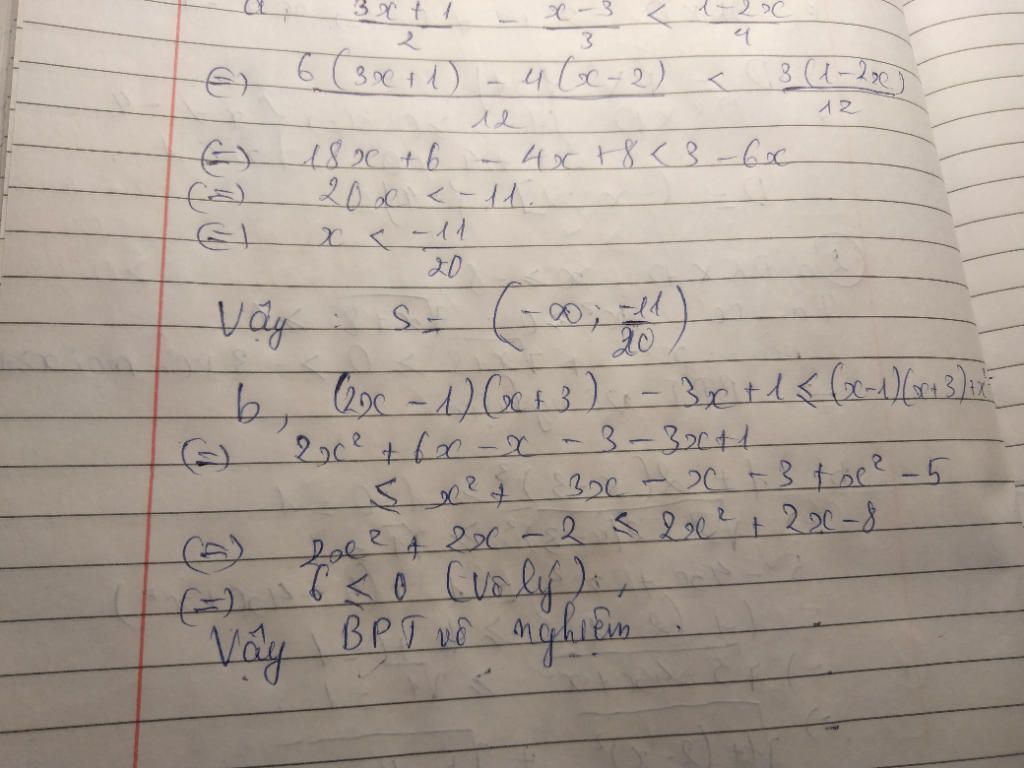 a, (3x+1)/2 - (x-3)/3 < (1-2x)/4
(=) (6(3x+1) - 4(x-2))/12 < (3(1-2x))/12
(=) 18x + 6 - 4x + 8 < 3 - 6x
(=) 20x < -11.
(=) x < -11/20
Vậy : S = (-∞; -11/20)
b, (2x-1)(x+3) - 3x+1 ≤ (x-1)(x+3)+x²
(=) 2x² + 6x - x - 3 - 3x+1
≤ x² + 3x - x - 3 + x² - 5
(=) 2x² + 2x - 2 ≤ 2x² + 2x - 8
(=) 6 ≤ 0 (Vô lý).
Vậy BPT vô nghiệm.